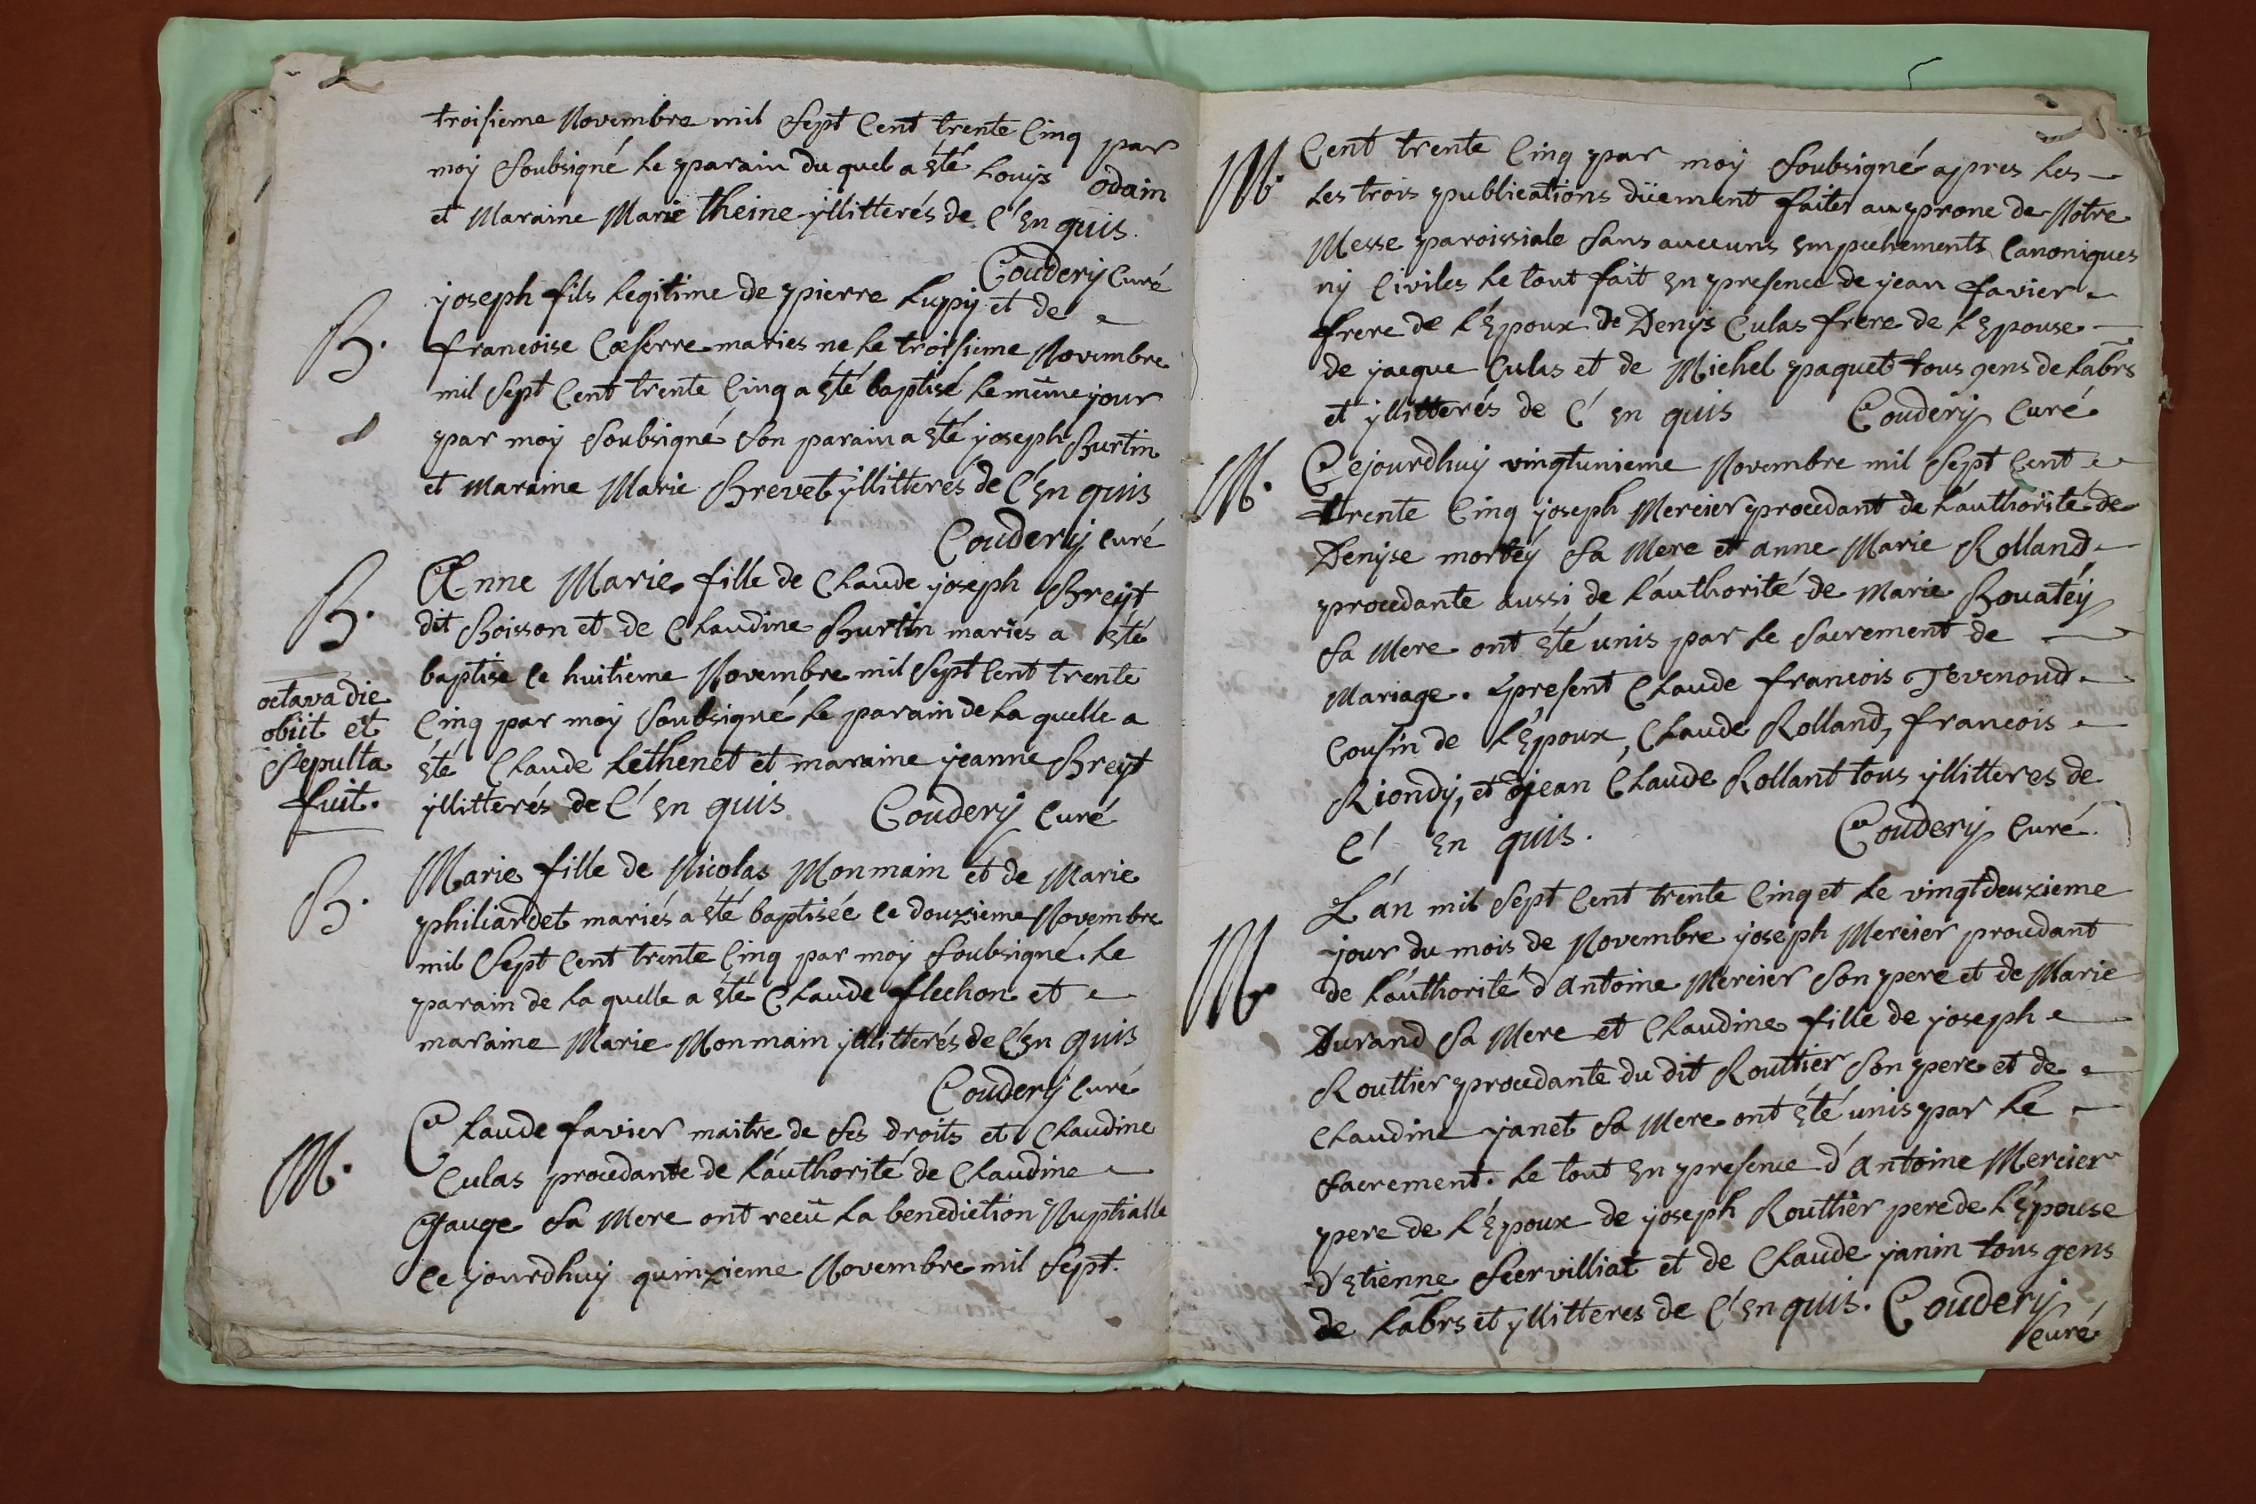 troisieme Novembre mil Sept Cent trente Cinq par
moy Soubsigné le parain du quel a été Louys odain
et Maraine Marie theine yllitterés de C' En quis.
Coudery Curé
B.
joseph fils legitime de pierre Luppy et de
francoise Caeserre maries ne le troisieme Novembre
mil Sept Cent trente Cinq a été baptisé le même jour
par moy Soubsigné Son parain a été joseph Burtin
et Maraine Marie Brevet yllitterés de C' En quis
Coudery curé
B.
Anne Marie fille de Claude joseph Breyt
dit Boisson et de Claudine Burtin mariés a été
baptise le huitieme Novembre mil Sept Cent trente
Cinq par moy Soubsigné le parain de la quelle a
été Claude Lethenet et maraine jeanne Breyt
yllitterés de C' En quis Coudery Curé
octava die
obiit et
Sepulta
fuit.
B.
Marie fille de Nicolas Monmain et de Marie
philiardet mariés a été baptisée ce douzieme Novembre
mil Sept Cent trente Cinq par moy Soubsigné. Le
parain de la quelle a été Claude flechon et
maraine Marie Monmain yllitterés de C' En quis
Coudery curé
M.
Claude favier maitre de Ses droits et Claudine
Culas procedante de l'authorité de Claudine
Gauge Sa Mere ont reçu la benediction Nuptialle
Ce jourdhuy quinzieme Novembre mil Sept.
M.
Cent trente Cinq par moy Soubsigné apres les
les trois publications düement faites au prone de Notre
Messe paroissiale Sans aucuns Empéchements Canoniques
ny Civiles le tout fait En presence de jean favier
frere de l'Epoux de Denys Culas frere de l'Epouse
de jacque Culas et de Michel paquet tous gens de labrs
et yllitterés de C' En quis Coudery Curé
M.
Cejourdhuy vingtunieme Novembre mil Sept Cent
trente Cinq joseph Mercier procedant de l'authorité de
Denyse mortéy Sa Mere et anne Marie Rolland
procedante aussi de l'authorité de Marie Bouatéy
Sa Mere ont été unis par le Sacrement de
Mariage. present Claude francois Tevenoud
Cousin de l'Epoux, Claude Rolland, francois
Riondy, et jean Claude Rollant tous yllitteres de
C' En quis. Coudery Curé.
M.
L'án mil Sept Cent trente Cinq et le vingtdeuxieme
jour du mois de Novembre joseph Mercier procedant
de l'authorité d'antoine Mercier Son pere et de Marie
Durand Sa Mere et Claudine fille de joseph
Routtier procedante du dit Routtier Son pere et de
Claudine janet Sa Mere ont été unis par le
Sacrement. le tout En presence d'antoine Mercier
pere de l'Epoux de joseph Routtier pere de l'Epouse
d'Etienne Scervilliat et de Claude janin tous gens
de labrs et yllitteres de C' En quis. Coudery
curé